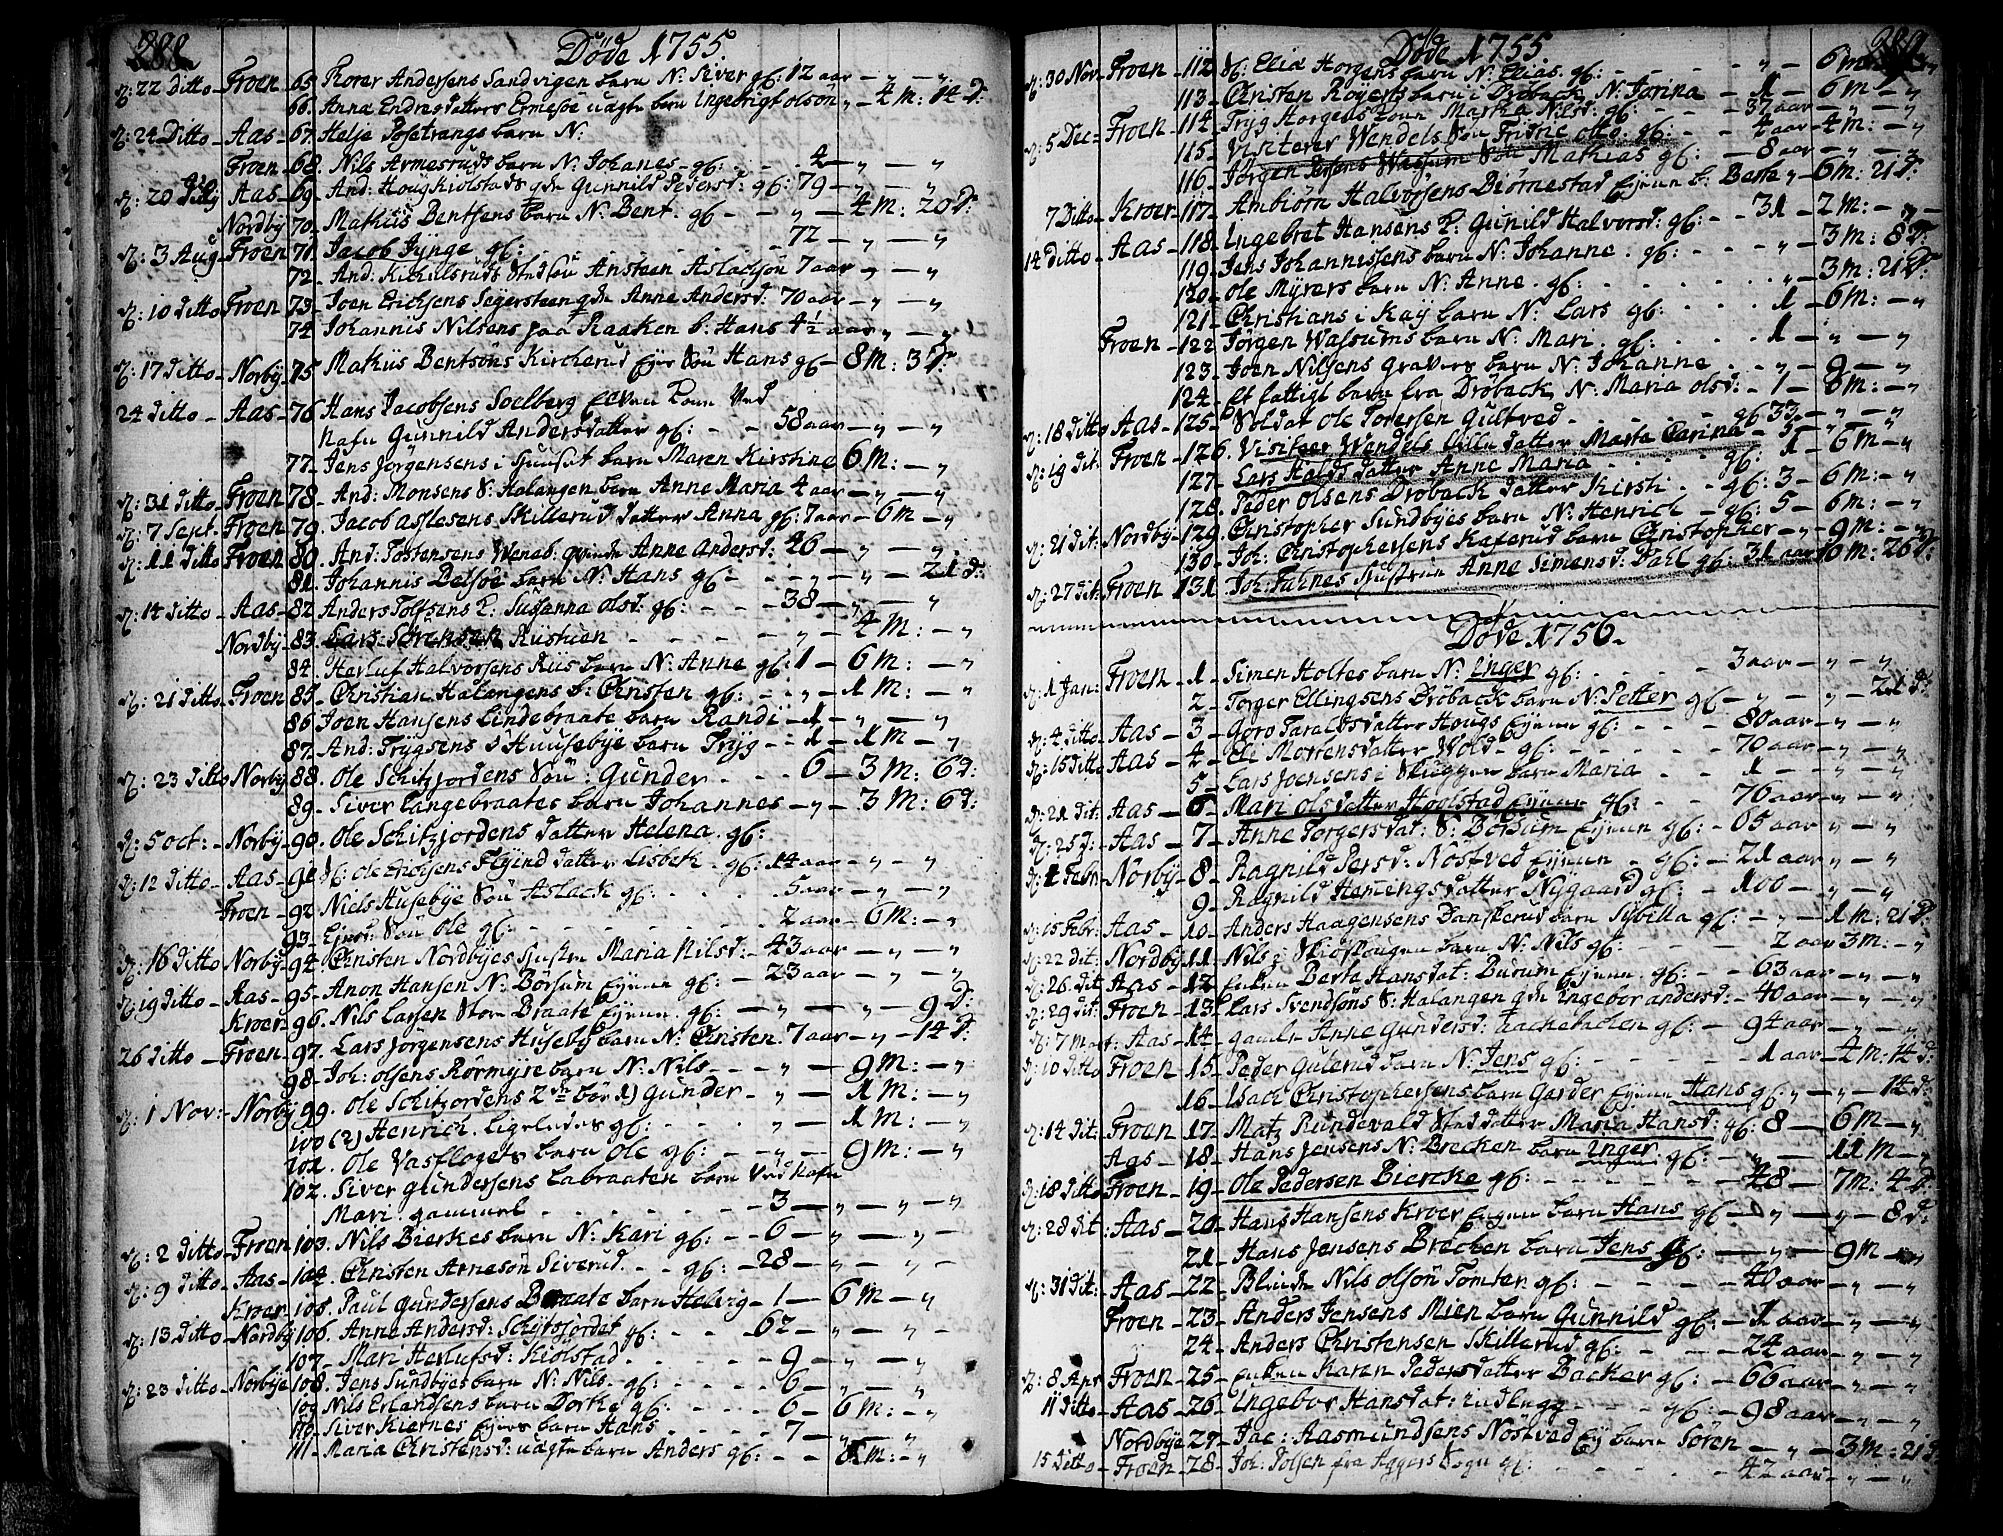 288
Døde 1755
d: 22 ditto - Froen - 65 Torer Andersens Sandvigen barn N: Siver gl: 12 aar - „ - „
66. Anna Endresdatters Ermesøe uægte barn Ingebrigt olsön „ - 4 M: 14 D:
d: 24 Ditto - Aas - 67. Helje Posetrangs barn N:
Froen - 68. Nils Armesruds barn N: Johanes gl: - 4 - „ - „
d: 20 July - Aas - 69. And: Houg Kiolstads qde Gunnild Pedersd: gl: 79 - „ - „
Nordby 70. Mathis Bentsens barn N: Bent. gl - „ - 4 M: 20 D:
d: 3 Aug - Froen 71. Jacob Jynge gl: - 72 - „ - „
72. And: Kickilsruds Stedsön Ansteen Aslachsön 7 aar - „ - „
d: 10 ditto Froen 73. Joen Erichsens Segersteen qde Anne Andersd: 70 aar - „ - „
74. Johannis Nilsens paa Raaken b: Hans 4½ aar „ - „
d: 17 ditto - Norby - 75 Mathis Bentsöns Kircherud Ejer Sön Hans gl - 8 M: 3 D:
24 ditto - Aas - 76 Hans Jacobsens Soelberg Ejeren Kone Ved
Nafn Gunnild Andersdatter gl: - - 58 aar - „ - „
77. Jens Jörgensens i Huuset barn Maren Kirstine 6 M: - „
d: 31 ditto - Froen 78. And: Monsens S: Halangen barn Anne Maria 4 aar - „ - „
d: 7 Sept - Froen 79. Jacob Aslesens Skillerud datter Anna gl: 7 aar - 6 m - „
d: 11 ditto Froen 80. And: Tostensens Wenab. qvinde Anne Andersd: 46 - „ - „
81. Johannis Belsøe barn N: Hans gl - - „ - „ - 21 d:
d: 14 ditto - Aas - 82 Anders Tolfsens K: Susanna olsd: gl: - - 38 - „ - „
Nordby 83. Lars Sörensen Kustuen - - „ - 4 M: - „
84. Herluf Halvorsens Riis barn N: Anne gl: 1 - 6 M: - „
d: 21 ditto - Froen - 85. Christian Halangens b: Christen gl: - - „ - 1 M: - „
86. Joen Hansens Lindebraate barn Randi - 1 - „ - „
87. And: Trygsens S Huusebye barn Tryg - - 1 - 1 M - „
d: 23 ditto Norby 88. Ole Schitzjordens Sön: Gunder - - 6 - 3 M: 6 d:
89. Siver Langebraates barn Johannes - „ - 3 M: 6 d:
d: 5 oct: - Norby - 90. Ole Schitzjordens datter Helena. gl:
d: 12 ditto - Aas - 91. S: ole Enoysens Flyind datter Lisbet. gl: 14 aar - „ - „
Froen - 92. Niels Husebye Sön Aslack gl: - - 5 aar - „ - „
93. Ejusd: Sön Ole gl: - - 2 aar - 6 M: - „
d: 16 ditto Norby - 94. Christen Nordbyes Hustru Maria Nilsd: 43 aar - „ - „
d: 19 ditto - Aas - 95. Anon Hansen N: Börsum Ejeren gl: - 23 aar - „ - „
Kroer - 96. Nils Larsen Store Braate Ejeren gl: - - „ - „ - 9 D:
26 ditto - Froen - 97. Lars Jörgensens Huseby barn N: Christen. 7 aar - „ - 14 D:
98. Joh: olsens Rörmyre barn N: Nils - „ - 9 M: - „
d: 1 Nov: - Norby 99. Ole Schitzjordens 2de bör 1) Gunder - „ - 1 M: - „
100 (2) Henrich. Ligeledes gl: - - „ - 1 M: - „
101. Ole Vasflogets barn Ole gl: - - „ - 9 M: - „
102. Siver gundersens Labraaten barn Ved Nafn
Mari. gammel - - 3 - „ - „ - „
d: 2 ditto - Froen 103. Nils Bierkes barn N: Kari gl: - 6 - „ - „
d: 9 ditto - Aas - 104. Christen Arnesön Siverud - - gl: - 28 - „ - „
Kroer - 105. Paul gundersens Braate barn Helvig - 1 - 6 M - „
d: 13 ditto - Nordby 106. Anne Andersd: Schitzjordet gl: - - 62 - „ - „
107. Mari Herlufsd: Kiolstad - - 9 - „ - „
d: 23 ditto - Norbye 108. Jens Sundbyes barn N: Nils. gl: - - 6 - „ - „
109. Nils Erlandsens barn Dorthe gl: - - 6 - 6 M: - „
110. Siver Kiernes Ejers barn Hans - - 7 - „ - „
111. Maria Christensd: uægte barn Anders gl: - - 8 m: - „
289
Døde 1755
d: 30 Nov - Froen - 112. S: Eliæ Horgens barn N: Elias. gl: - - „ - 6 m: - „
113. Christen Röyens barn i Dröback N: Karina - 1 - 6 M: - „
d: 5 Dec - Froen - 114. Tryg Horgens Kone Martha Nilsd: gl: - 37 aar - „ - „
115. Visiterer Wendels Sön Frisne otto. gl: - - 4 aar - 4 m: - „
116. Jörgen Wassums Sön Mathias gl: - 8 aar - „ - „
7 ditto - Kroer - 117. Ambiörn Halvorsens Biörnestad Ejeren b: Berte „ - 6 m: 21 D:
14 ditto - Aas - 118. Ingebret Hansens K: Gunild Halvorsd: gl: - - 31 - 2 M: - „
119. Jens Johannissens barn N: Johanne. gl: - - „ - 3 m: 8 D:
120. Ole Myrers barn N: Anne. gl: - - „ - 3 M: 21 D:
121. Christians i Kay barn N: Lars gl: - - 1 - 6 m: - „
Froen - 122. Jörgen Wassums barn N: Mari. gl: - - 1 - „ - „
123. Joen Nilsens Gravers barn N: Johanne - - „ - 9 - „
124. Et fattigt barn fra Dröback N: Maria olsd: - 1 - 8 m: - „
d: 18 ditto Aas - 125. Soldat Ole Torersen Gultved - - gl 33 - „ - „
d: 19 dit: Froen - 126. Visiteer Wendels lille datter Marte Carina - 5 - „ - „
127. Lars Holds datter Anne Maria - - gl: 1 - 6 M - „
128. Peder olsens Dröback datter Kirsti - gl: 3 - 6 m: - „
d: 21 dit: Nordby - 129. Christopher Sundbyes barn N: Henrich - gl: 5 - 6 m: - „
130. Joh: Christophersens Kaxerud barn Christopher - „ - 9 m: - „
d: 27 dit: Froen 131. Joh: Fahnes Hustrue Anne Simensd: Dahl gl: 31 aar 10 m: 26 D:
Døde 1756.
d: 1 Jan: Froen - 1. Simen Holtes barn N: Inger gl: - - 3 aar - „ - „
2. Torger Ellingsens Dröback barn N: Petter gl - „ - „ - 21 D:
d: 4 ditto - Aas - 3. Goro Taraldsdatter Hougs Ejeren gl: - - 80 aar - „ - „
d: 15 ditto Aas - 4. Eli Mortensdatter Wold - gl: - - 70 aar - „ - „
5. Lars Joensens i Skuggen barn Maria - - 1 - „ - „
d: 21 dit: Aas - 6. Mari olsdatter Hoolstad Ejeren gl: - 76 aar - „ - „
d: 25 J: - Aas - 7. Anne Torgersdat: S: Börsum Ejeren gl: - 65 aar - „ - „
d: 1 Febr - Norby - 8. Ragnild Persd: Nöstved Ejeren - gl: - 21 aar - „ - „
9. Ragnild Hemengsdatter Nygaard gl: - 100 - „ - „
d: 15 Febr: Aas - 10. Anders Haagensens Danskerud barn Sybilla gl: - „ - 1 M: 21 D:
d: 22 dit: Nordby 11. Nils i Skröskougen barn N: Nils gl: - - 2 aar 3 m: - „
d: 26 dit Aas - 12. Enken Berte Hansdat: Burum Ejeren. gl: - - 63 aar - „ - „
d: 29 dit: Froen - 13. Lars Svendsöns S: Halangen qde Ingebor andersd: - 40 aar - „ - „
d: 7 mart: Aas - 14. gamle Anne Gundersd: aachebachen gl: - 94 aar - „ - „
d: 10 ditto Froen - 15. Peder Gulerud barn N: Jens gl: - - 1 aar - 4 m: 14 D:
16. Isach Christophersens barn Garder Ejeren Hans gl: „ - „ - 14 d:
d: 14 dit: Froen - 17. Matz Rundevald Steddatter Maria Hansd: gl: 8 - 6 M - „
Aas - 18. Hans Jensens N: Brecken barn Inger gl: - „ - 11 M - „
d: 18 ditto Froen - 19. Ole Pedersen Biercke gl: - - 48 - 7 m: 4 D:
d: 28 dit: Aas - 20. Hans Hansens Kroer Ejeren barn Hans gl - „ - „ - 8 d:
21. Hans Jensens Brecken barn Jens gl: - „ - 9 M - „
d: 31 dit: Aas - 22. Blinde Nils olsön Tomter gl: - - 40 aar - „ - „
Froen - 23. Anders Jensens Mien barn Gunnild gl: - 1 aar - „ - „
24. Anders Christensen Skillerud gl: - - 24 aar - „ - „
d: 8 Apr Froen - 25. Enken Karen Pedersdatter Backer gl: - 66 aar - „ - „
11 ditto - Aas - 26. Ingebor Hansdat: indlugg - gl: - 98 aar - „ - „
Nordbye 27. Jac: Aasmundsens Nöstved Ej barn Sören - „ - 3 M: 21 d:
15 ditto - Froen - 28. Joh: Polsen fra Aggers Sogn gl: - - 42 aar - „ - „